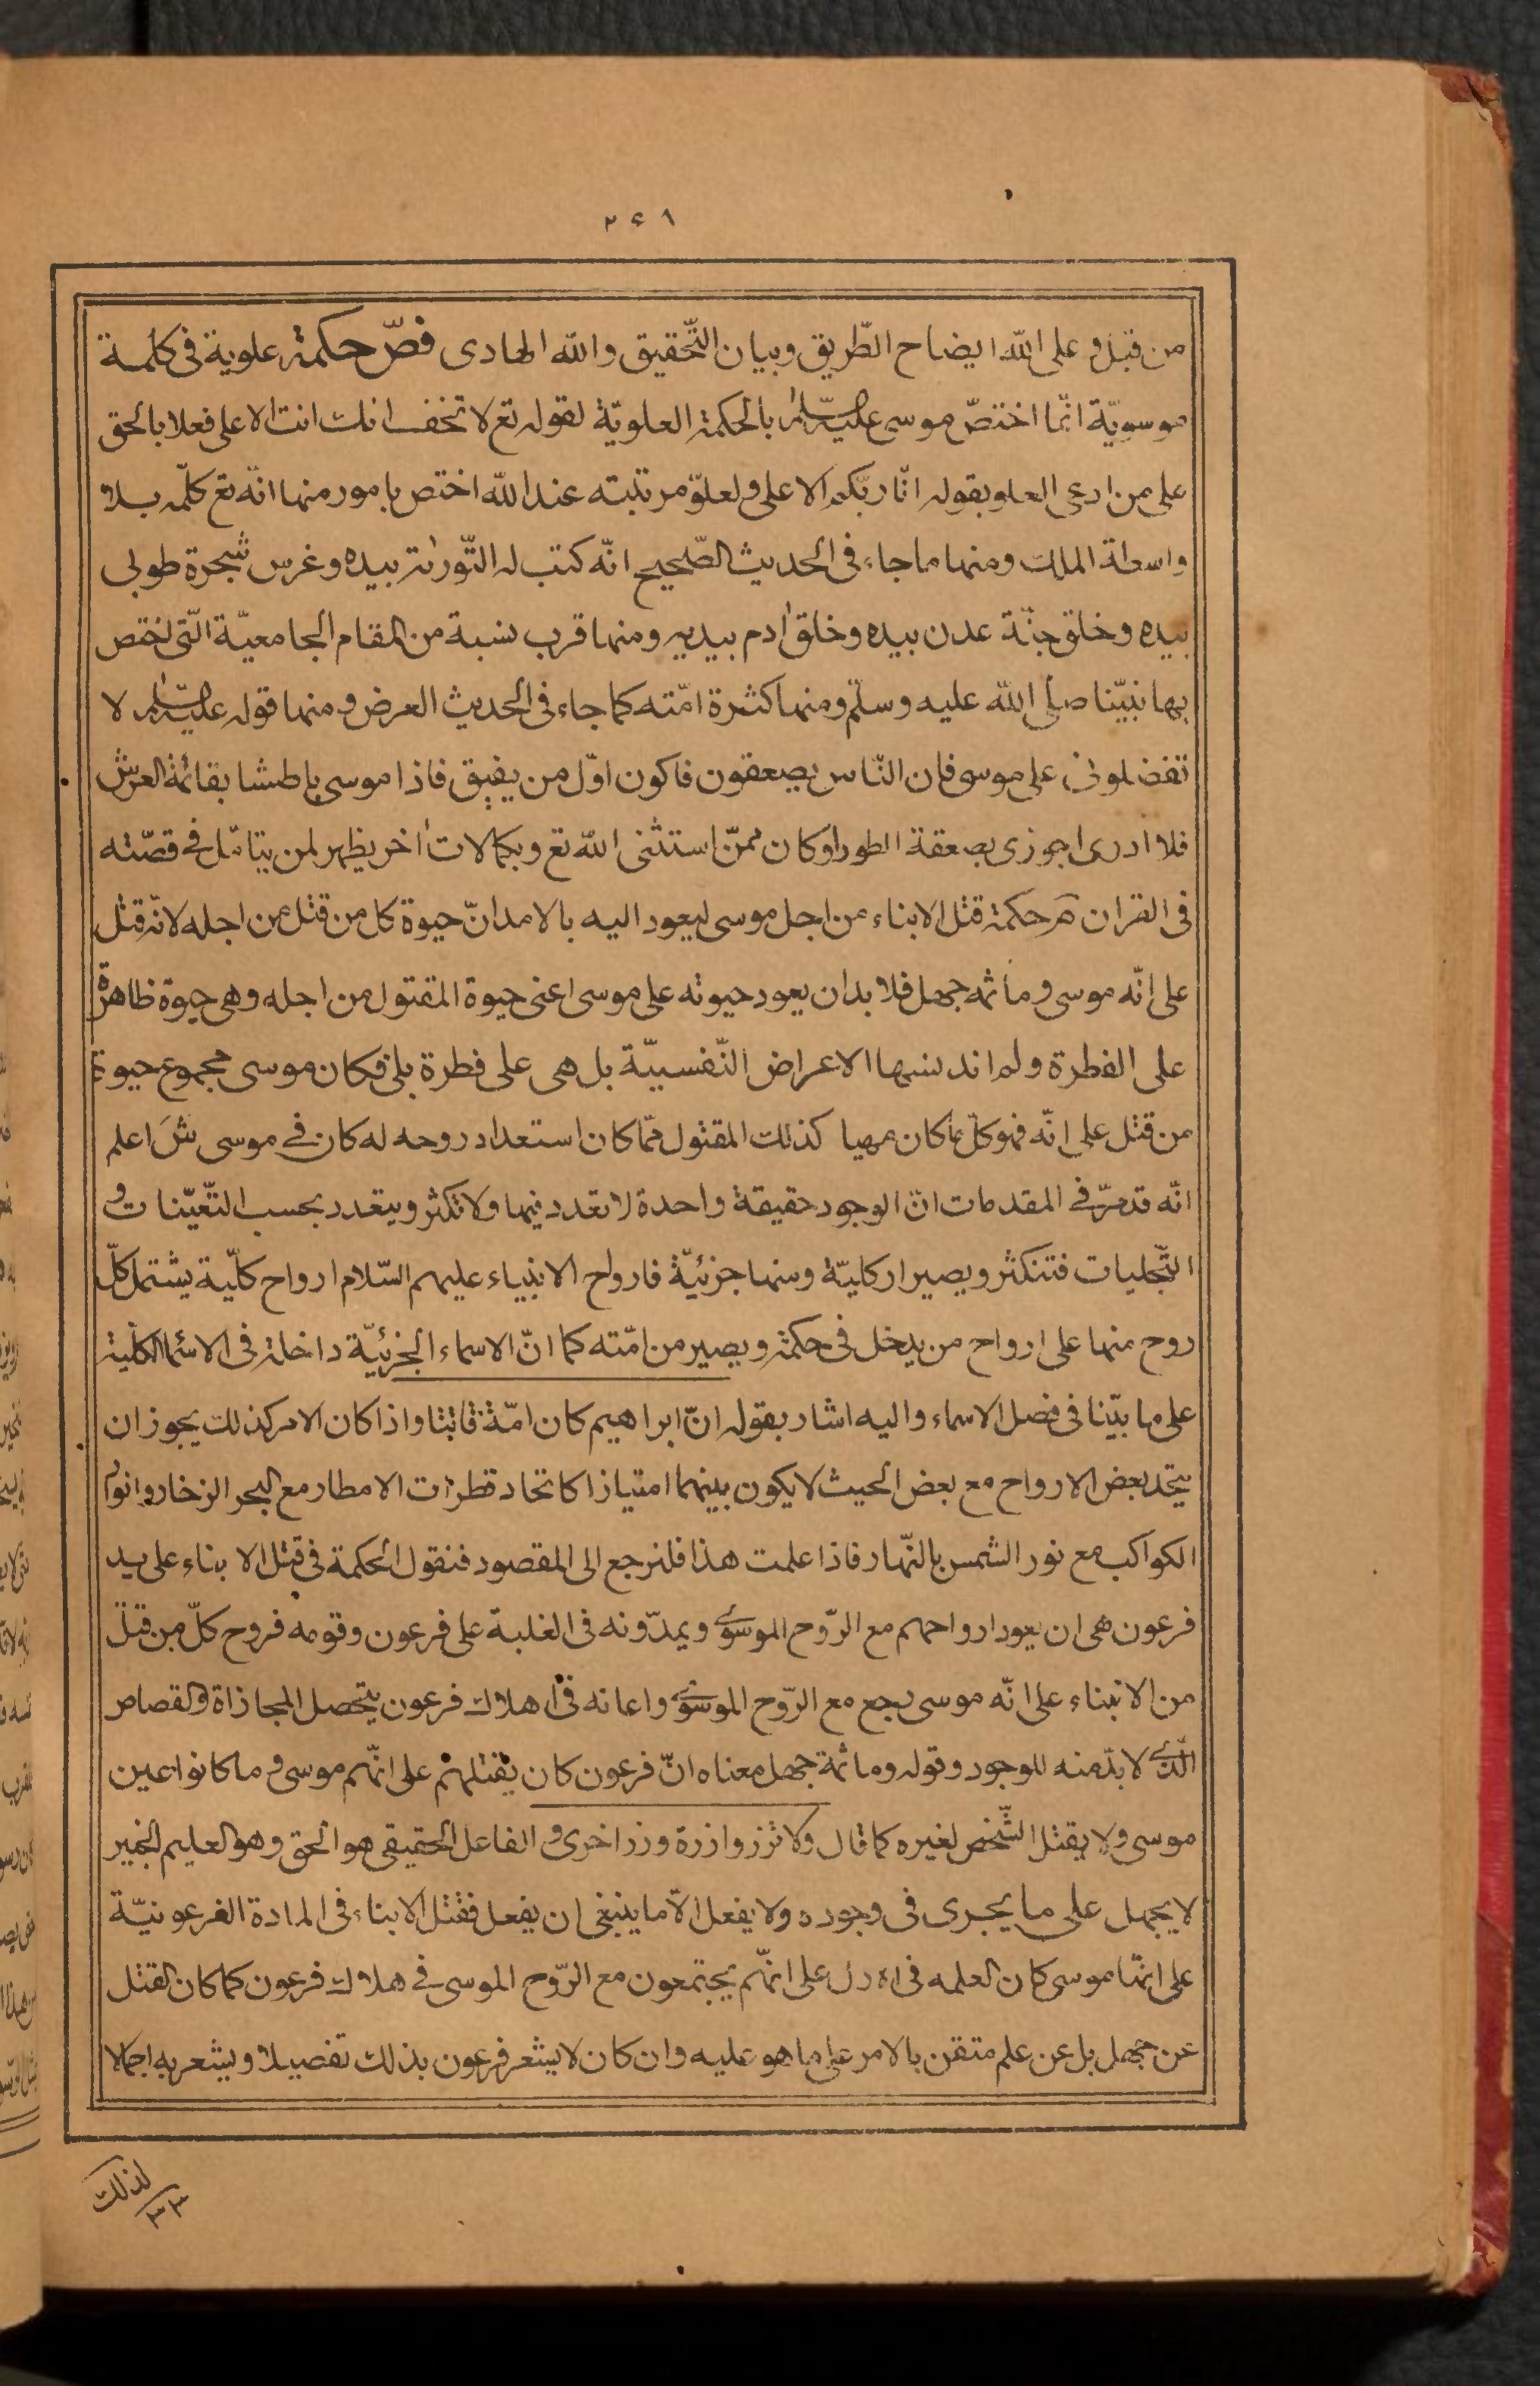 ۲۶۱
من قبل و على الله ايضاح الطّريق وبيان التّحقيق والله الهادى فصّ حكمة علوية فى كلمة
موسويّة انّما اختصّ موسى عليه السّلام بالحكمة العلويّة لقوله تع لا تخف انك انت الاعلى فعلا بالحق
على من ادعى العلو بقوله انا ربّكم الاعلى ولعلوّ مرتبته عند الله اختص بامور منها انّه تع كلّمه بلا
واسطة الملك ومنها ما جاء فى الحديث الصّحيح انّه كتب له التّورٰىة بيده وغرس شجرة طوبى
بيده وخلق جنّة عدن بيده وخلق اٰدم بيديه ومنها قرب نسبة من المقام الجامعيّة الّتى اختص
بها نبيّنا صلى الله عليه وسلّم ومنها كثرة امّته كما جاء فى الحديث العرض و منها قوله عليه السّلام لا
تفضلونى على موسى فان النّاس يصعقون فاكون اوّل من يفيق فاذا موسى باطشا بقائمة العرش
فلا ادرى اجوزى بصعقة الطور او كان ممّن استثنى الله تع وبكمالات اٰخر يظهر لمن يتامّل فى قصّته
فى القران م حكمة قتل الابناء من اجل موسى ليعود اليه بالامداد حيوة كل من قتل من اجله لانّه قتل
على انّه موسى وما ثمه جهل فلا بد ان يعود حيوته على موسى اعنى حيوة المقتول من اجله وهى حيوة ظاهرة
على الفطرة ولم تدنسها الاعراض النّفسيّة بل هى على فطرة بلى فكان موسى مجموع حيوة
من قتل على انّه فهو كلّ ما كان مهيا كذلك المقتول ممّا كان استعداد روحه له كان فى موسى ش اعلم
انّه قد مرّ فى المقدمات انّ الوجود حقيقة واحدة لا تعدد فيها ولا تكثر ويتعدد بحسب التّعيّنات و
التّجليات فتتكثر ويصير ار كليّة ومنها جزئيّة فارواح الانبياء عليهم السّلام ارواح كلّية يشتمل كلّ
روح منها على ارواح من يدخل فى حكمة ويصير من امّته كما انّ الاسماء الجزئيّة داخلة فى الاسماء الكلّية
على ما بيّنا فى فصل الاسماء واليه اشار بقوله انّ ابراهيم كان امّة قانتا واذا كان الامر كذلك يجوز ان
يتحد بعض الارواح مع بعض الحيث لا يكون بينهما امتيازا كاتحاد قطرات الامطار مع البحر الزخار وانوار
الكواكب مع نور الشمس بالنّهار فاذا علمت هذا فلنرجع الى المقصود فنقول الحكمة فى قتل الابناء على يد
فرعون هى ان يعود ارواحهم مع الرّوح الموسوى ويمدّونه فى الغلبة على فرعون وقومه فروح كلّ من قتل
من الابناء على انّه موسى رجع مع الرّوح الموسوى واعانه فى اهلاك فرعون يتحصل المجازاة والقصاص
الّذى لا بدّ منه للوجود وقوله وما ثمة جهل معناه انّ فرعون كان يقتلهم على انّهم موسى و ما كانوا عين
موسى ولا يقتل الشّخص لغيره كما قال ولا تزر وازرة وزر اخرى و الفاعل الحقيقى هو الحق وهو العليم الخبير
لا يجهل على ما يجرى فى وجوده ولا يفعل الّا ما ينبغى ان يفعل فقتل الابناء فى المادة الفرعونيّة
على انّها موسى كان لعلمه فى ازل على انّهم يجتمعون مع الرّوح الموسى فى هلاك فرعون كما كان القتل
عن جهل بل عن علم متقن بالامر على ما هو عليه وان كان لا يشعر فرعون بذلك تفصيلا ويشعر به اجمالا
لذلك
۳۳